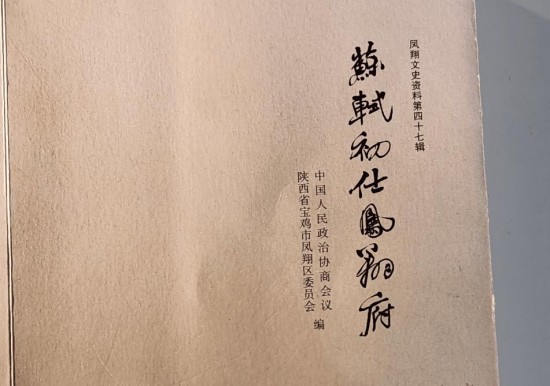 凤翔文史资料第四十七辑
蘇軾初仕鳳翔府
中国人民政治协商会议
陕西省宝鸡市凤翔区委员会
编